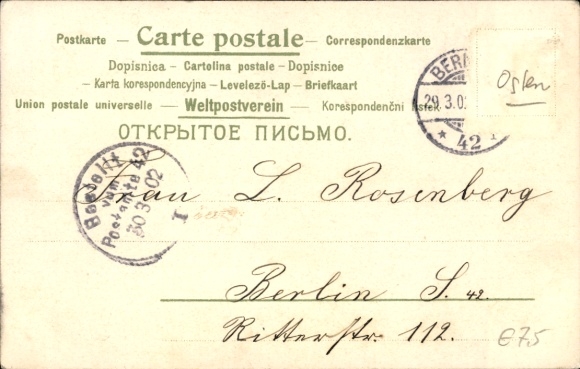 Postkarte — Carte postale — Correspondenzkarte
Dopisnica — Cartolina postale — Dopisnice
— Karta korespondencyjna — Levelező-Lap — Briefkaart
Union postale universelle — Weltpostverein — Korespondenční lístek
ОТКРЫТОЕ ПИСЬМО.
29.3.02
* 42
Ostern
Bestellt
vom
Postamte 42
30.3.02
I
Frau L. Rosenberg
Berlin S. 42.
Ritterstr. 112.
€7,5